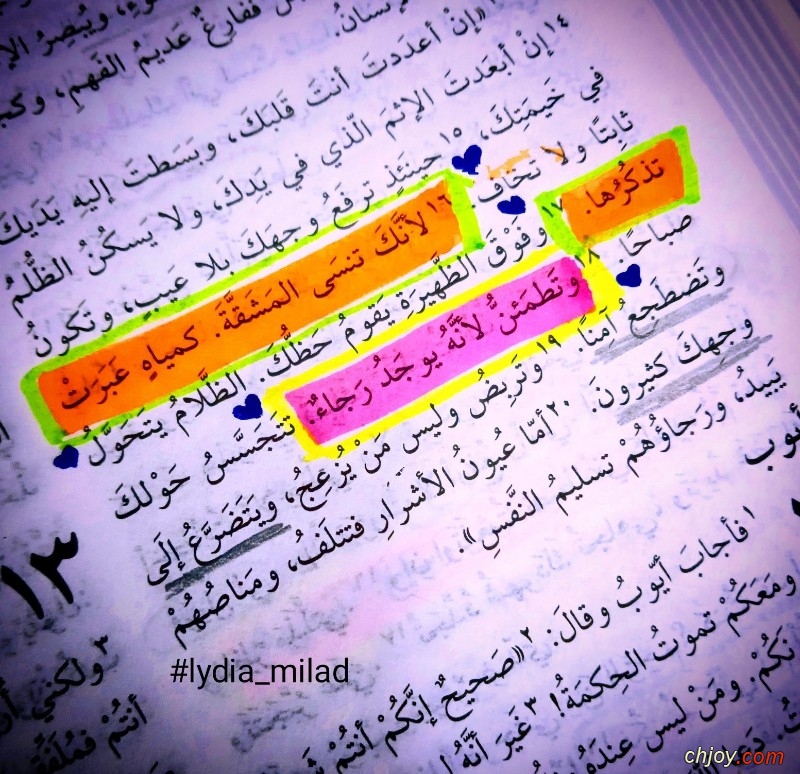 ويُبصِرُ
ففارِغٌ عديمُ الفَهمِ،
«إنْ أعدَدتَ أنتَ قَلبَكَ، وبَسَطتَ إليهِ يَدَيكَ
١٤ إنْ أبعَدتَ الإثمَ الّذي في يَدِكَ، ولا يَسكُنُ الظُّلمُ
في خَيمَتِكَ، ١٥ حينَئذٍ ترفَعُ وجهَكَ بلا عَيبٍ، وتَكونُ
ثابِتًا ولا تخافُ. ١٦ لأنَّكَ تنسَى المَشَقَّةَ. كمياهٍ عَبَرَتْ
تذكُرُها. ١٧ وفَوْقَ الظَّهيرَةِ يَقومُ حَظُّكَ. الظَّلامُ يتَحَوَّلُ
صباحًا. ١٨ وتَطمَئنُّ لأنَّهُ يوجَدُ رَجاءٌ. تتَجَسَّسُ حَوْلكَ
وتَضطَجِعُ آمِنًا. ١٩ وتَربِضُ وليس مَنْ يُزعِجُ، ويَتَضَرَّعُ إلَى
وجهِكَ كثيرونَ. ٢٠ أمّا عُيونُ الأشرارِ فتتلَفُ، ومَناصُهُمْ
يَبيدُ، ورَجاؤُهُمْ تسليمُ النَّفسِ».
١ فأجابَ أيّوبُ وقالَ: ٢ «صَحيحٌ إنَّكُمْ أنتُمْ
ومَعَكُمْ تموتُ الحِكمَةُ! ٣ غَيرَ أنَّهُ
ومَنْ ليس عِندَهُ
١٣
٣ ولكني
أنتُمْ
#lydia_milad
chjoy.com